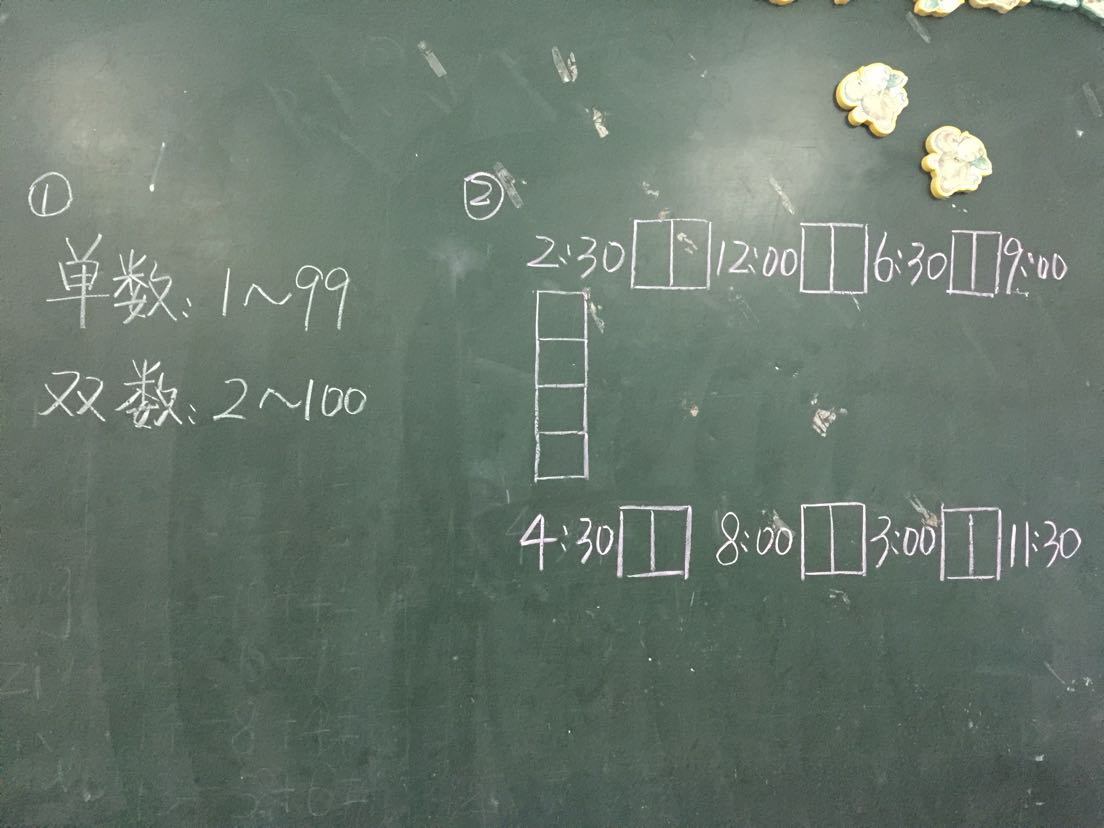 ①
单数:1～99
双数:2～100
②
2:30 12:00 6:30 9:00
4:30 8:00 3:00 11:30